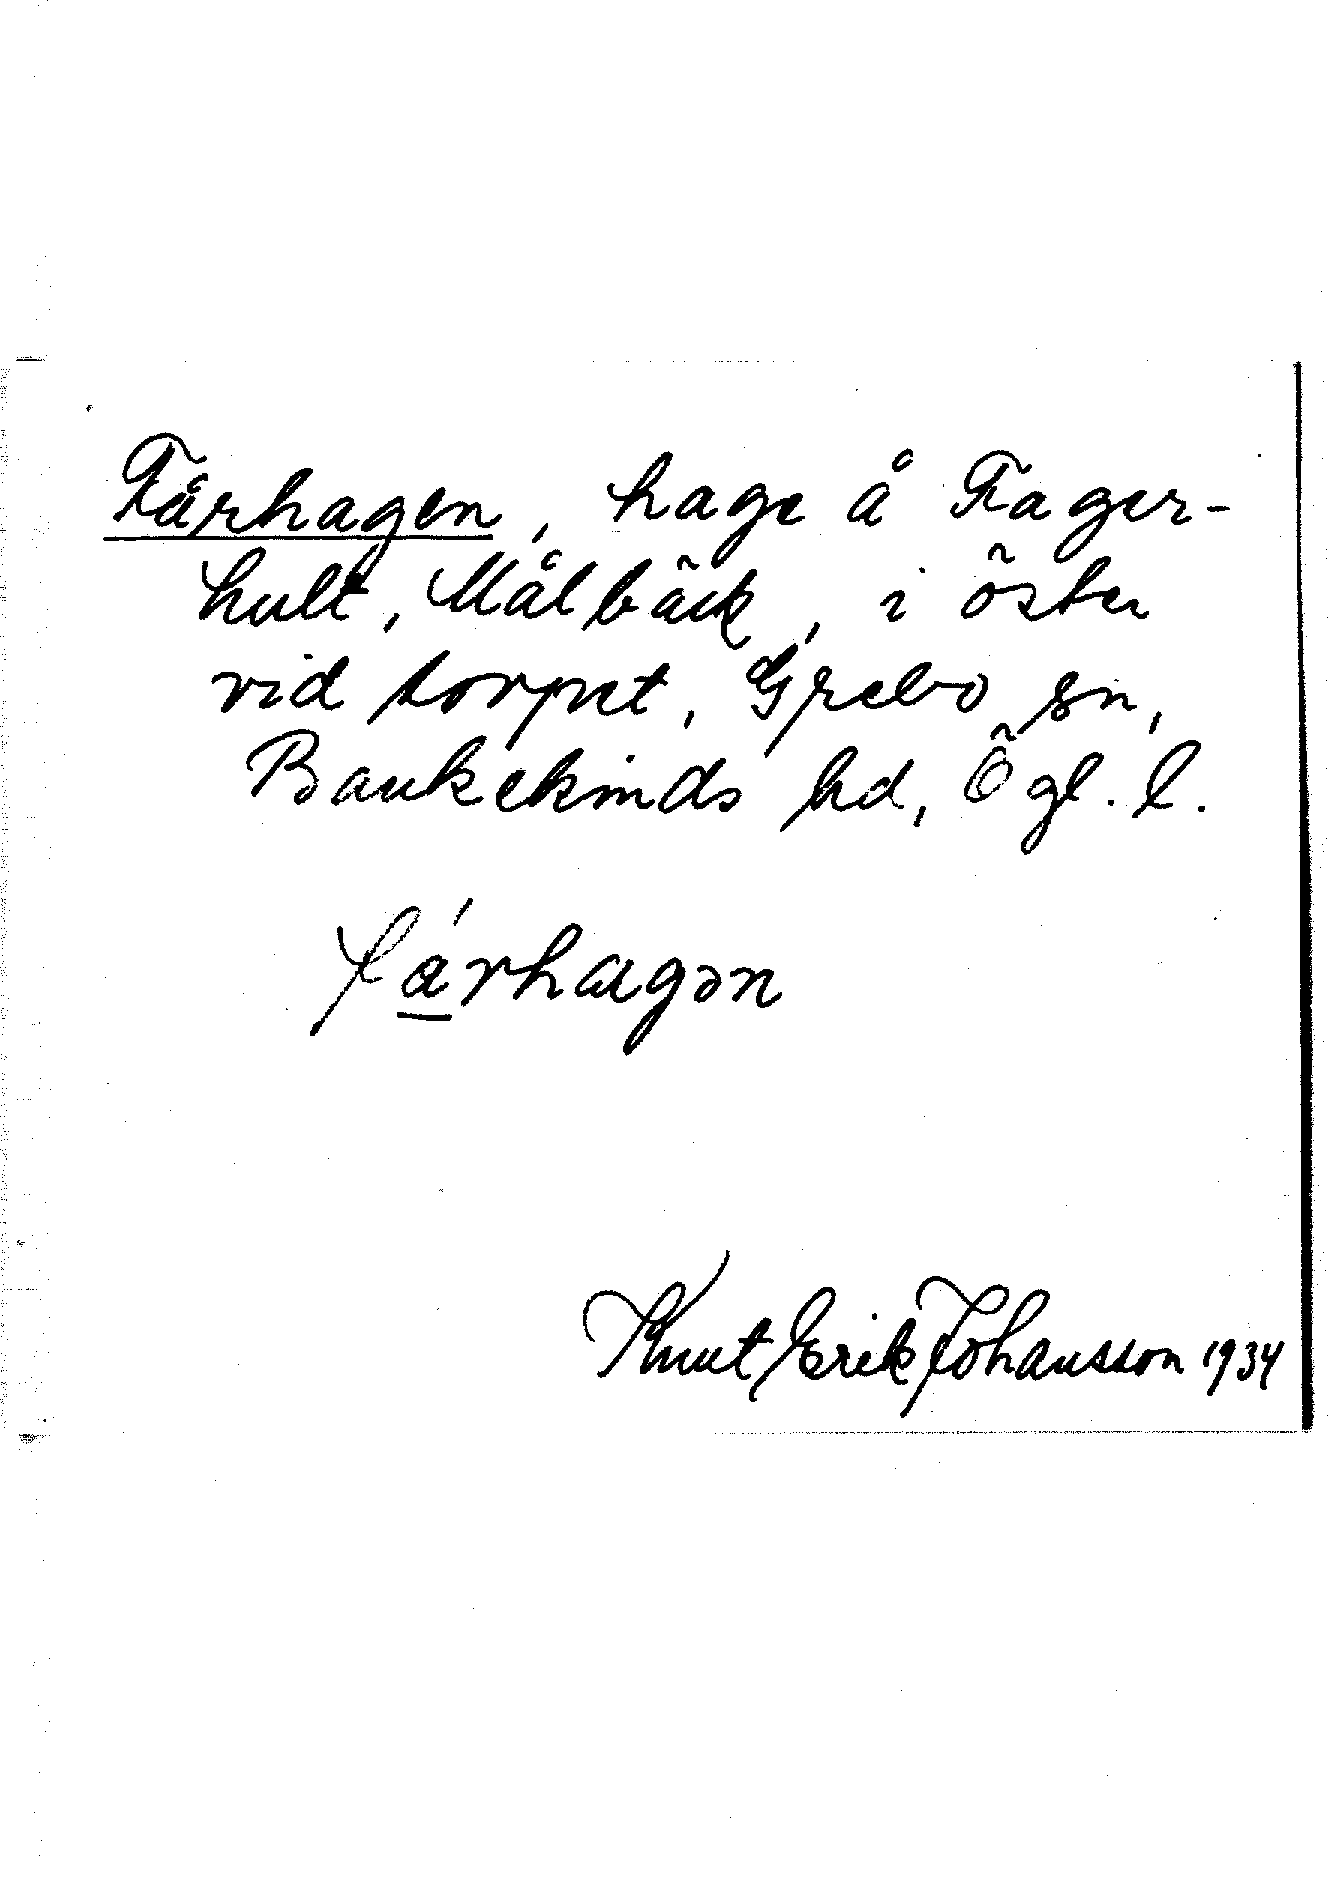 Fårhagen, hage å Fager-
hult, Målbäck, i öster
vid torpet, Grebo sn,
Bankekinds hd, Ögl. l.
fárhagən
Knut Erik Johansson 1934